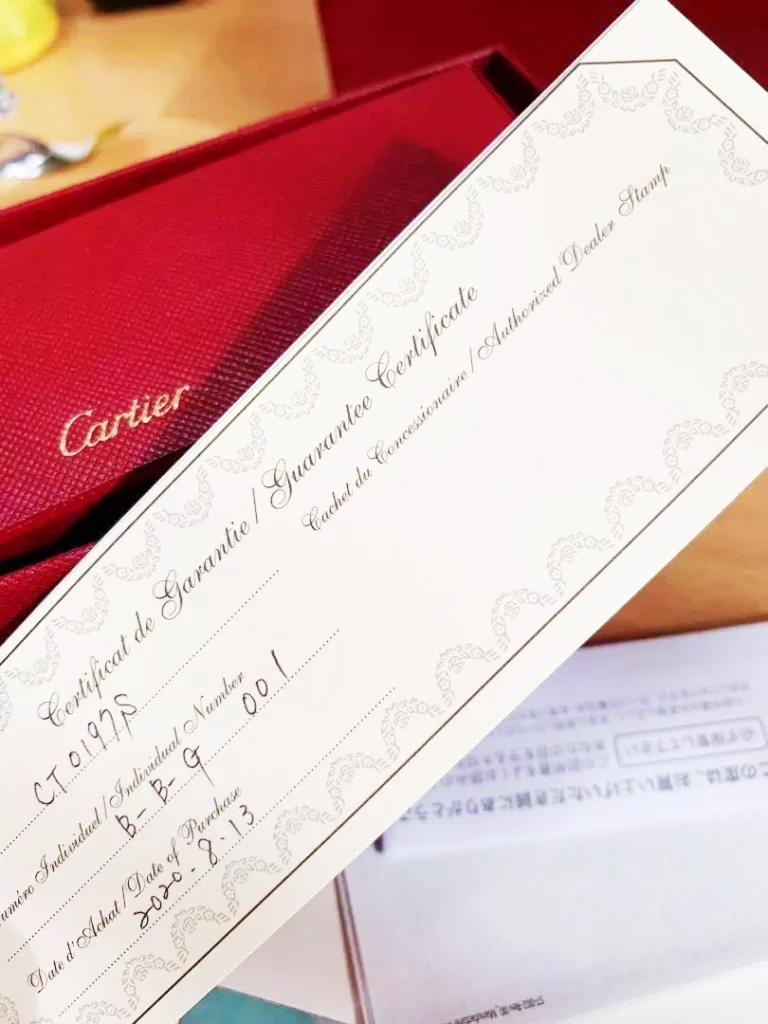 Cartier
Certificat de Garantie / Guarantee Certificate
Cachet du Concessionaire / Authorized Dealer Stamp
CT0197S
uméro Individuel / Individual Number
B-B-G 001
Date d'Achat / Date of Purchase
2020.8.13
この度は、お買い上げいただき誠にありがとう
必ず保管して下さい